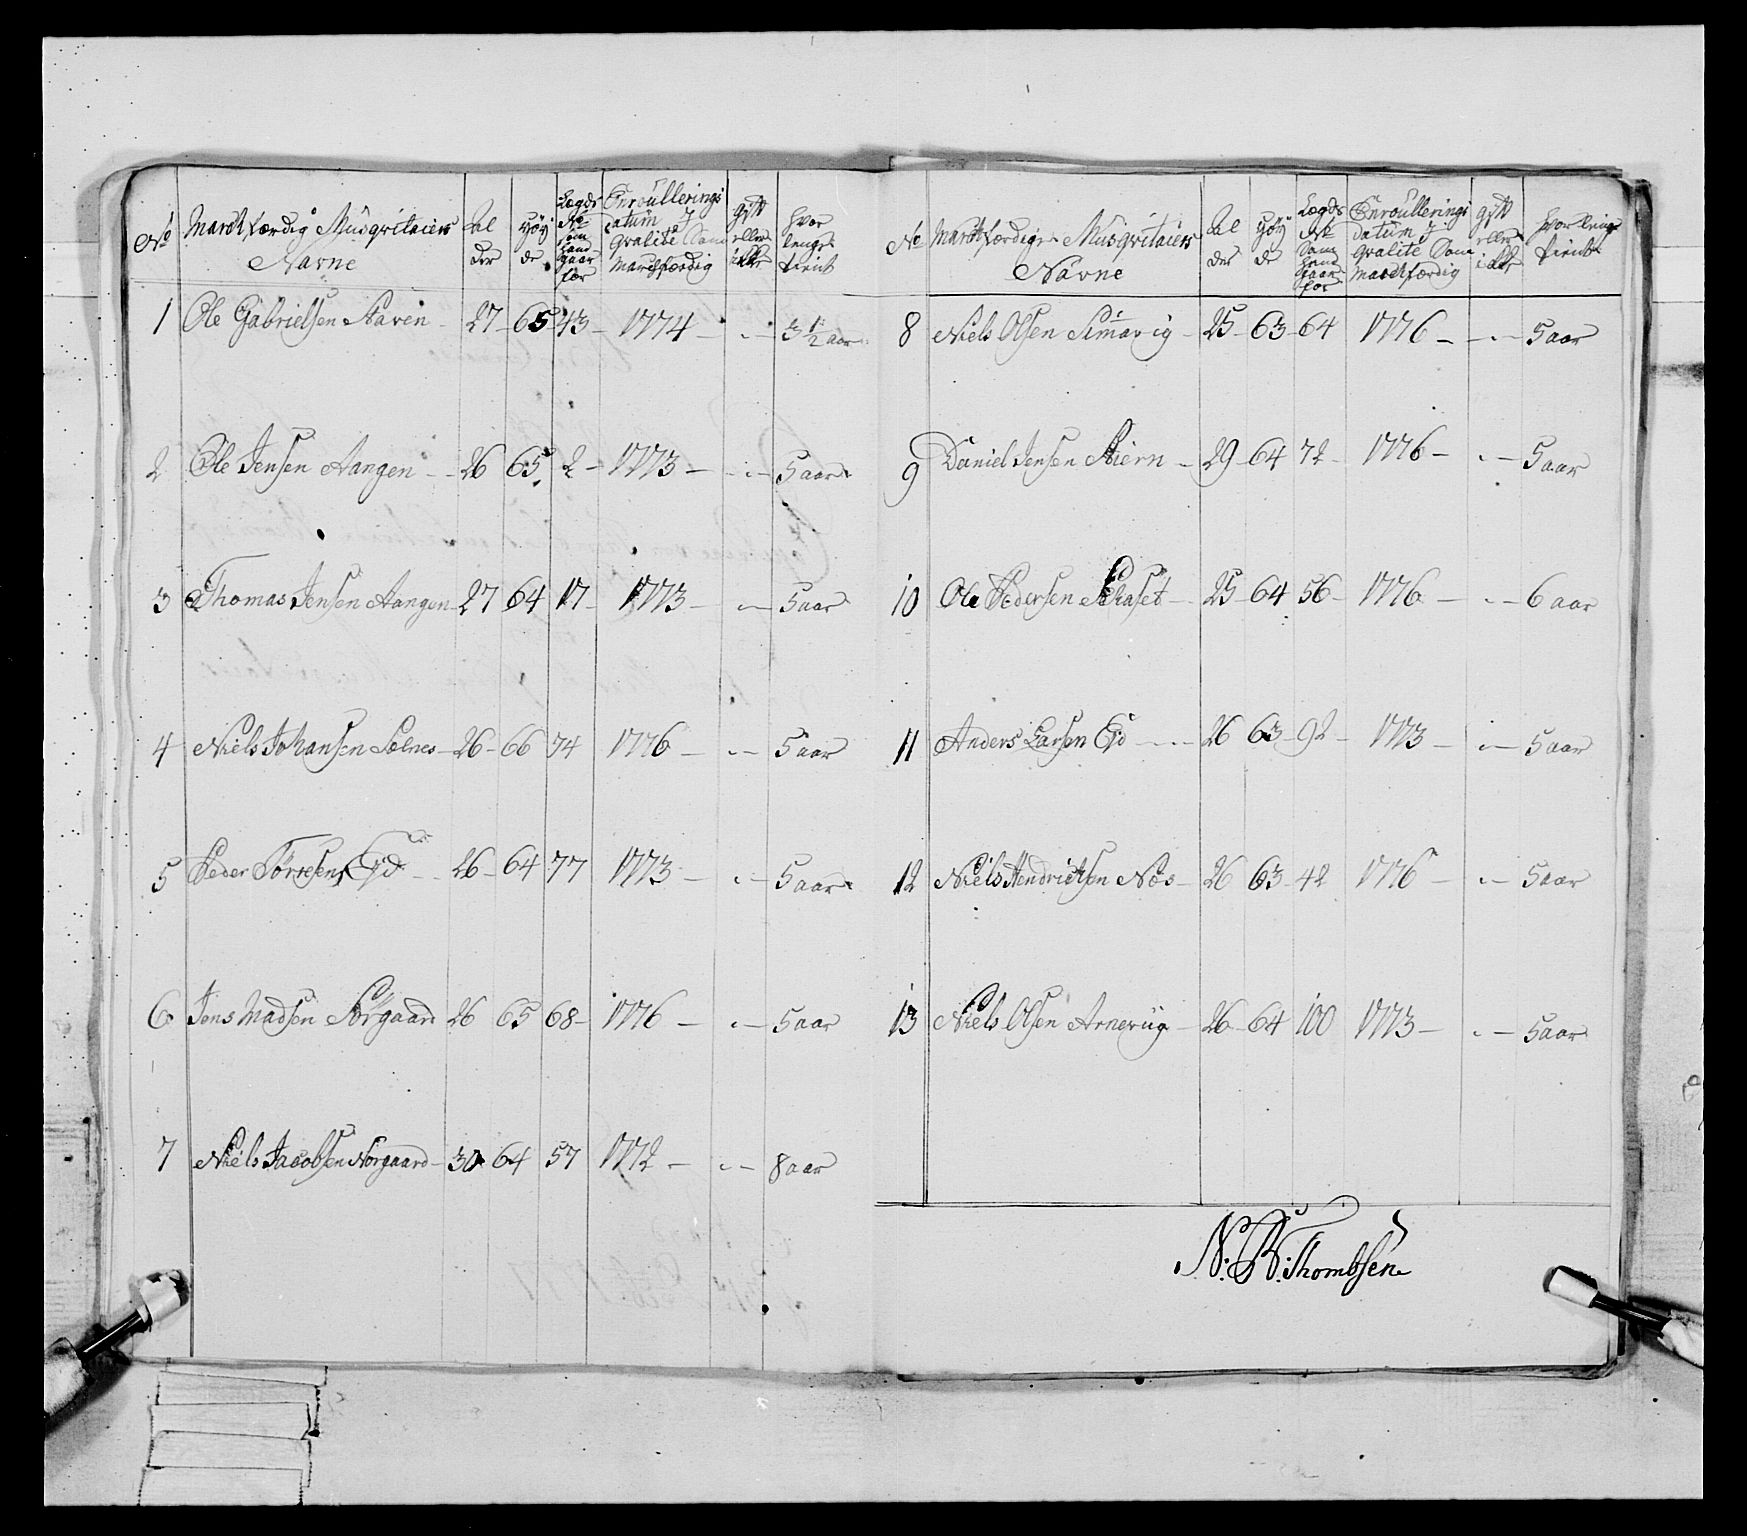 No
Marchfærdig Musqvitaiers
Navne
Al
der
Høy
de
Lægds
No
som
hand
staar
for
Enroullerings
datum I
qvalite Som
Marchfærdig
Gift
eller
ikke
hvor
lenge
tient
1 Ole Gabrielsen Staven - 27 - 65 43 - 1774 - - 3 1/2 aar
2 Ole Jensen Aangen - 26 65 2 - 1773 - - 5 aar
3 Thomas Jensen Aangen - 27 64 17 - 1773 - - 5 aar
4 Niels Johansen Solnes - 26 - 66 74 1776 - - 5 aar
5 Peder Torresen Eid - 26 - 64 77 1773 - - 5 aar
6 Jens Madsen Sørgaard 26 65 68 - 1776 - - 5 aar
7 Niels Jacobsen Norgaard - 30 64 57 1772 - - 8 aar
No
Marchfærdige Musqvitaiers
Navne
Al
der
Høy
de
Lægds
No
Som
hand
staar
for
Enroullerings
datum I
qvalite Som
Marchfærdig
Gift
eller
ikke
hvor lenge
tient
8 Niels Olsen Simavig - 25 - 63 - 64 1776 - - 5 aar
9 Daniel Jensen - 29 - 64 72 - 1776 - - 5 aar
10 Ole Pedersen - 25 - 64 56 - 1776 - - 6 aar
11 Anders Larsen Eid - 26 63 - 92 - 1773 - - 5 aar
12 Niels Hendrichsen Næs - 26 63 - 42 1776 - - 5 aar
13 Niels Olsen - 26 - 64 100 1773 - - 5 aar
N: B: Thombsen